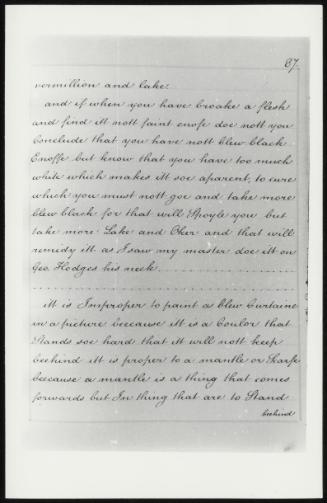 87.
vermillion and lake.
and if when you have broake a flesh
and find itt nott faint enofe doe nott you
Conclude that you have nott blew black
Enoffe but know that you have too much
white which makes itt soe aparent, to cure
which you must nott goe and take more
blew black for that will Spoyle you but
take more Lake and Oker and that will
remidy itt as I saw my master doe itt on
Geo. Hodges his neck.
itt is Improper to paint a blew Curtaine
in a picture becaause itt is a Coulor that
Stands soe hard that itt will nott keep
beehind itt is proper to a mantle or Skarfe
because a mantle is a thing that comes
forwards but In thing that are to Stand
beehind